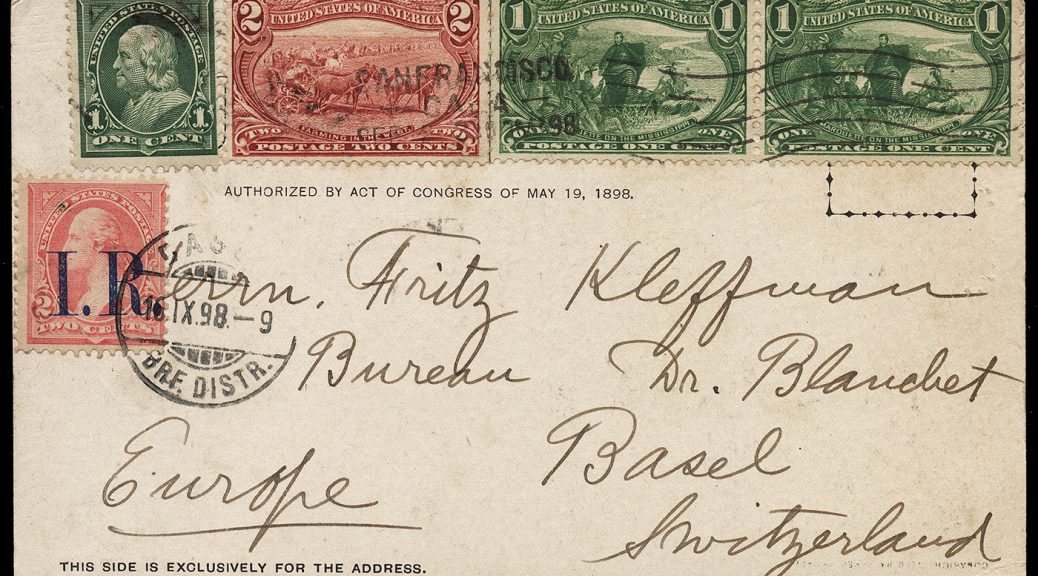 UNITED STATES POSTAGE
1 1
ONE CENT
2 2
UNITED STATES OF AMERICA
FARMING IN THE WEST.
TWO TWO
POSTAGE TWO CENTS
1 1
UNITED STATES OF AMERICA
MARQUETTE ON THE MISSISSIPPI.
ONE ONE
POSTAGE ONE CENT
1 1
UNITED STATES OF AMERICA
MARQUETTE ON THE MISSISSIPPI.
ONE ONE
POSTAGE ONE CENT
SAN FRANCISCO
98
AUTHORIZED BY ACT OF CONGRESS OF MAY 19, 1898.
UNITED STATES POSTAGE
I.R.
2
TWO CENTS
16.IX.98.–9
BRF. DISTR.
Herrn. Fritz Kleffman
Bureau Dr. Blanchet
Europe Basel
Switzerland
THIS SIDE IS EXCLUSIVELY FOR THE ADDRESS.